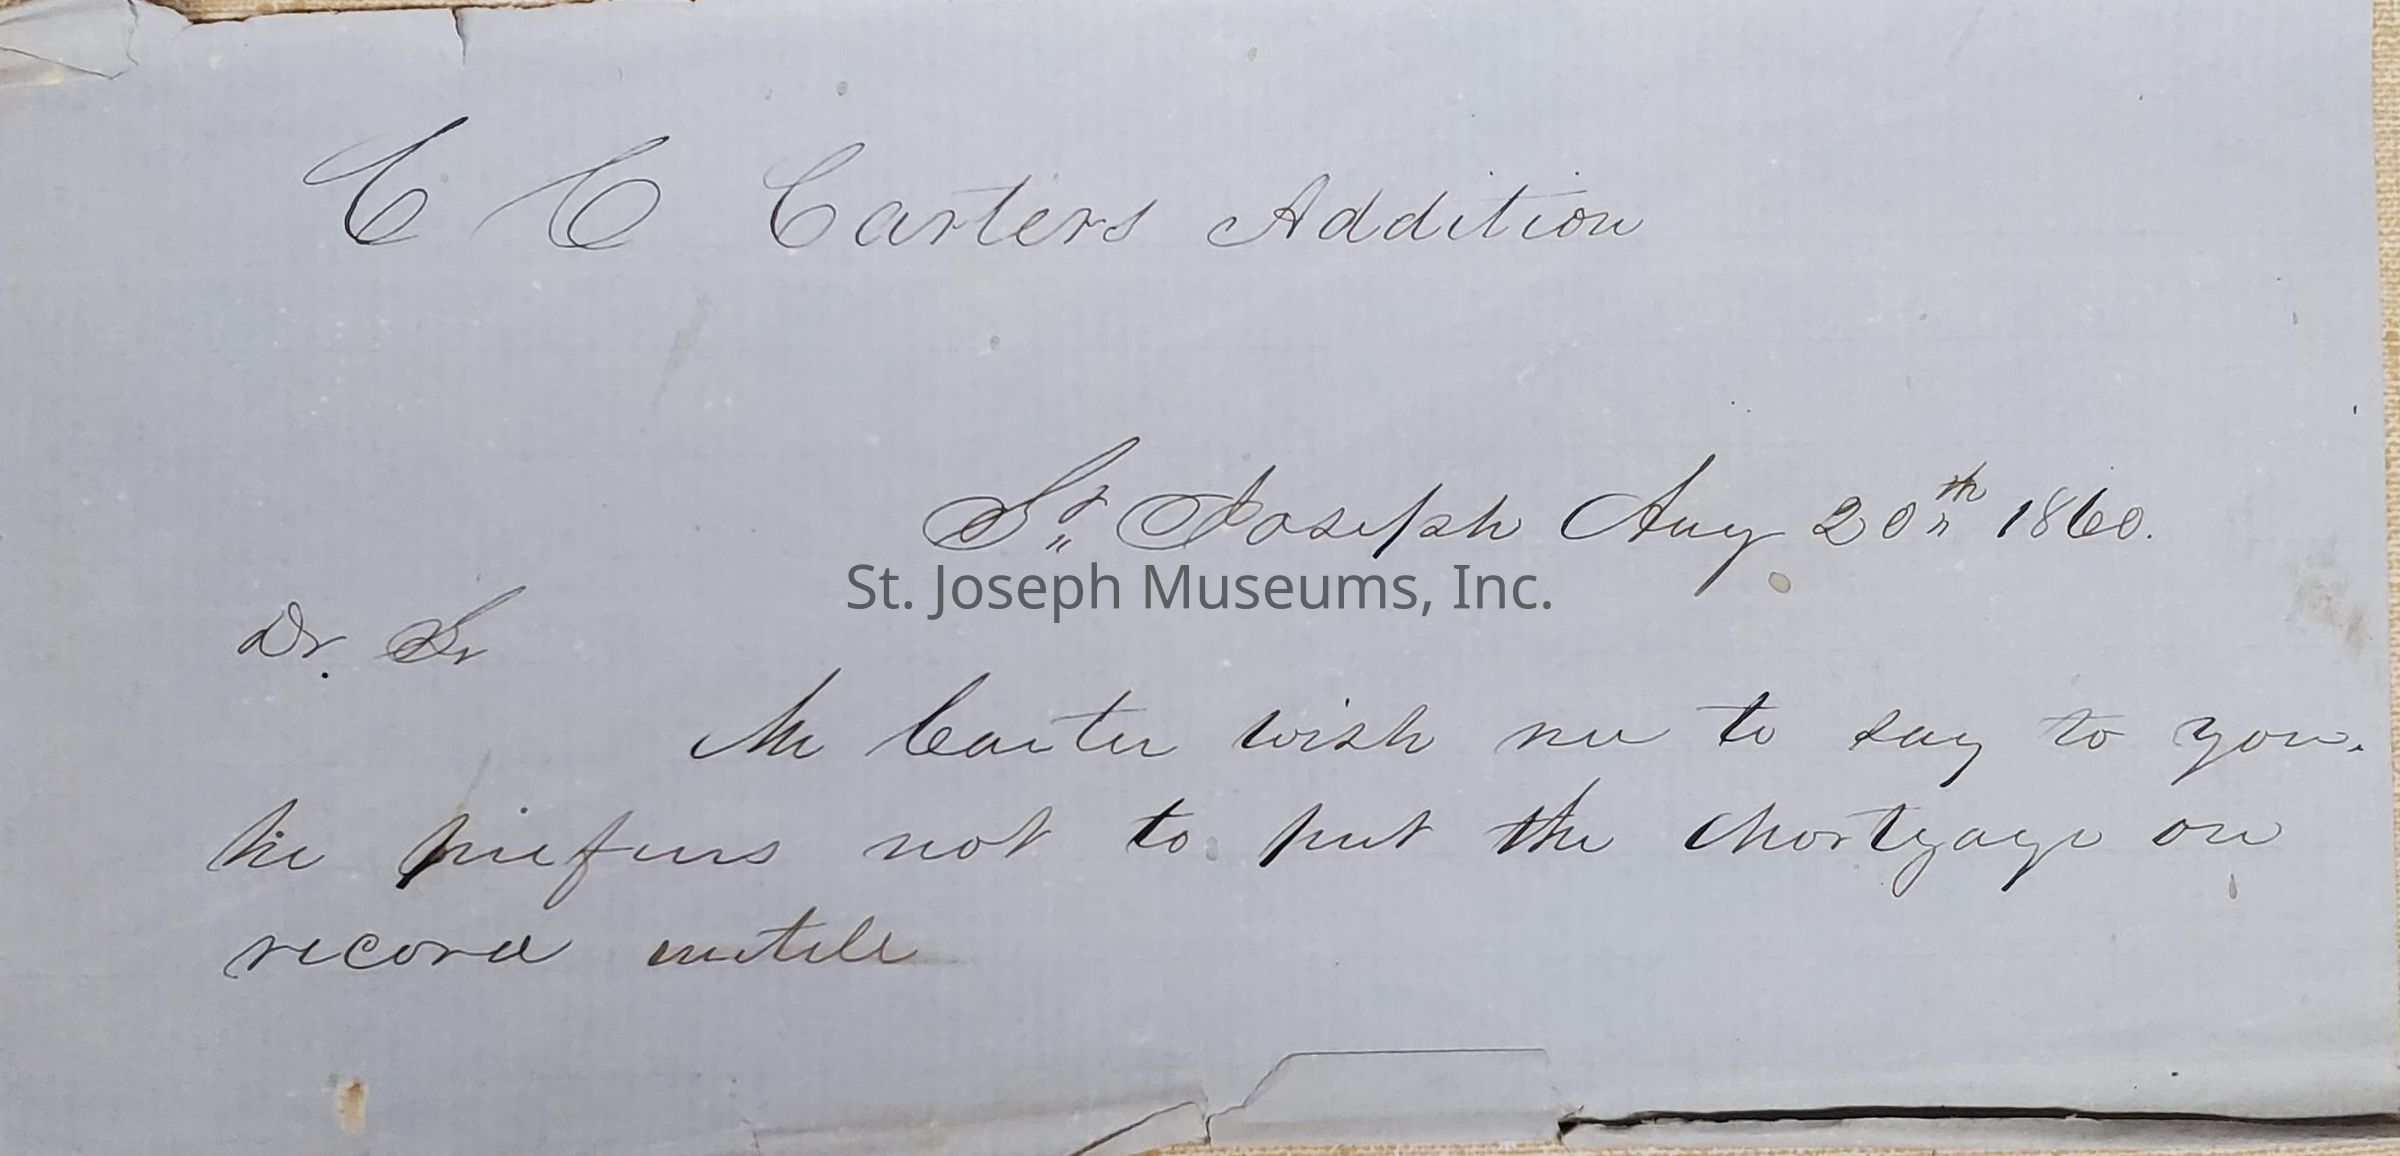 C C Carters Addition
St. Joseph Aug 20th 1860.
St. Joseph Museums, Inc.
Dr. Sr
Mr Carter wish me to say to you.
he prefers not to put the Mortgage on
record untill